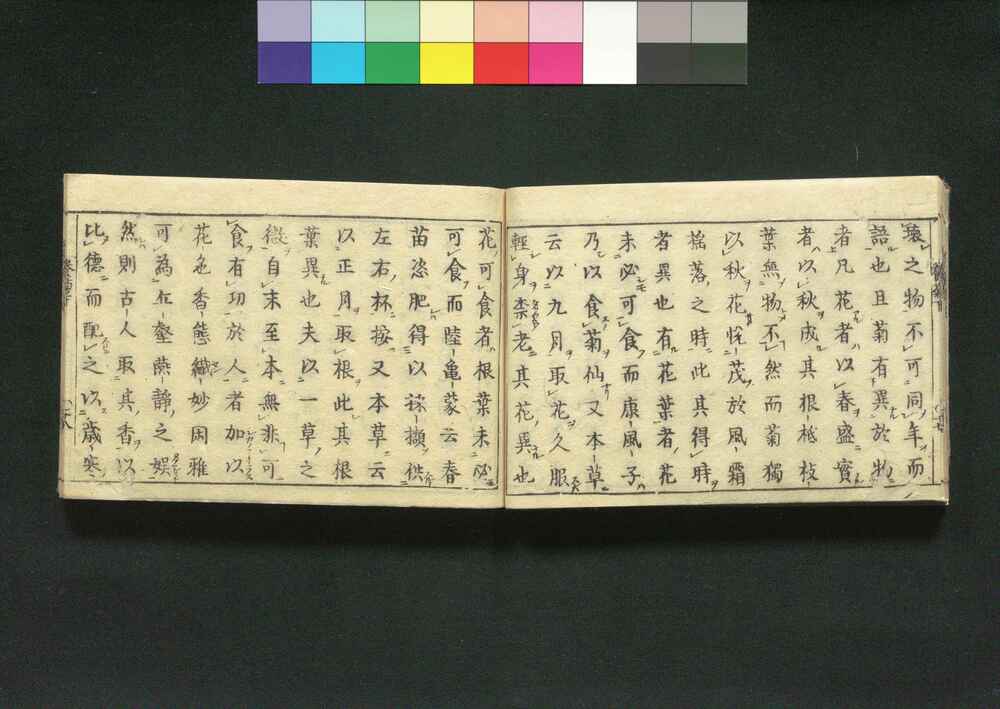 壤之物不可同年而
語也且菊有異於物
者凡花者以春盛實
者以秋成其根柢枝
葉無物不然而菊獨
以秋花悅茂於風霜
搖落之時此其得時
者異也有花葉者花
未必可食而康風子
乃以食菊仙又本草
云以九月取花久服
輕身柰老其花異也
花可食者根葉未必
可食而陸龜蒙云春
苗恣肥得以採擷供
左右杯按又本草云
以正月取根此其根
葉異也夫以一草之
微自末至本無非可
食有功於人者加以
花色香態纖妙閑雅
可為丘壑燕靜之娛
然則古人取其香以
比德而配之以歲寒